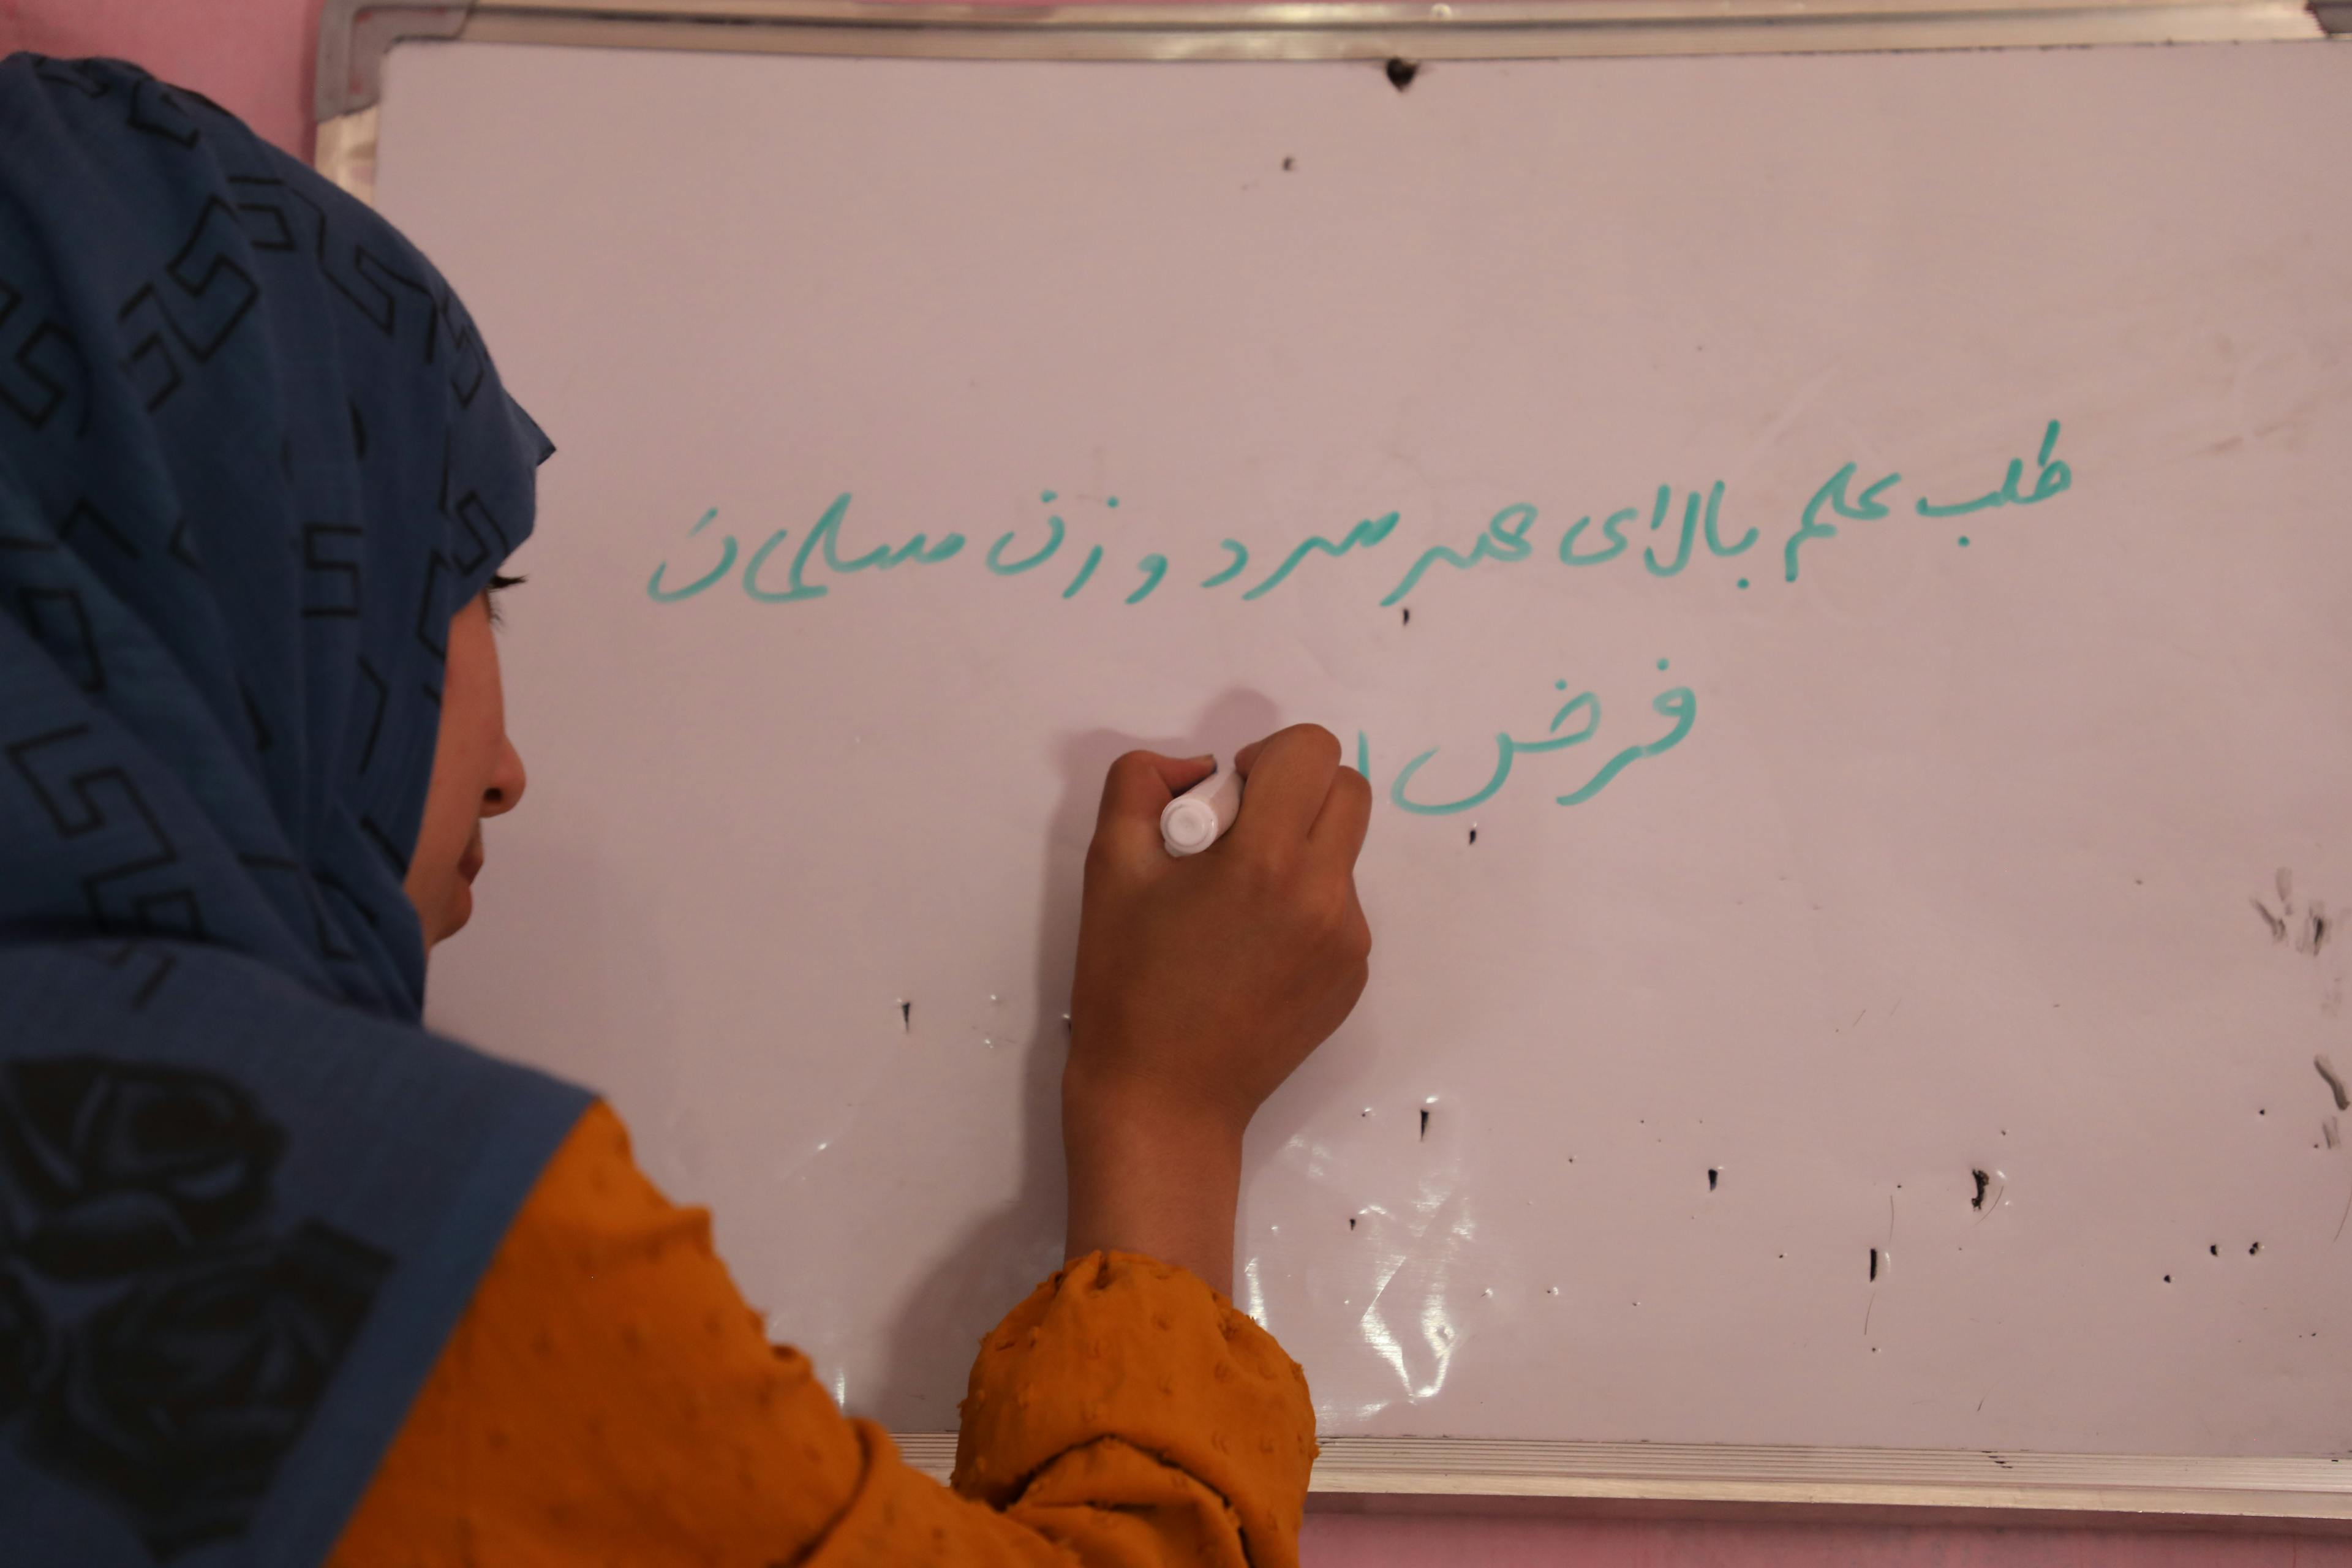 طلب علم بالای هر مرد و زن مسلمان
فرض ا